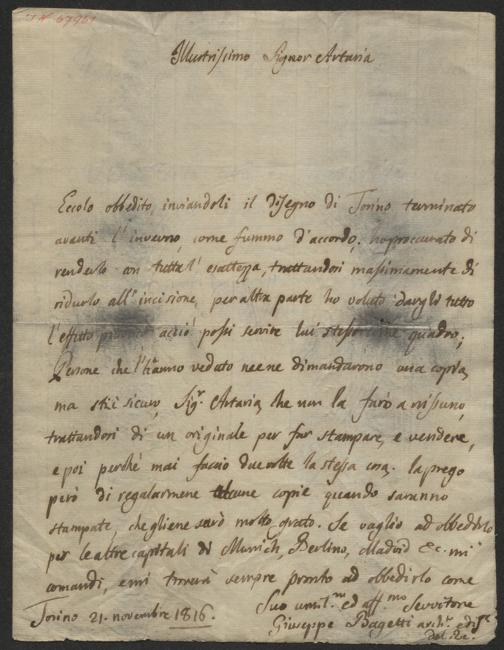 Illustrissimo Signor Artaria
Eccolo obbedito, inviandoli il disegno di Torino terminato
avanti l'inverno, come fummo d'accordo, ho procurato di
renderlo con tutta l'esattezza, trattandosi massimamente di
ridurlo all'incisione, per altra parte ho voluto dargli tutto
l'effetto acciò possi servire lui stesso quadro;
Persone che l'hanno veduto ne dimandarono una copia,
ma stii sicuro, Sigr. Artaria, che non la farò a nissuno,
trattandosi di un originale per far stampare, e vendere,
e poi perché mai faccio due volte la stessa cosa. la prego
però di regalarmene alcune copie quando saranno
stampate, che gliene sarò molto grato. Se vaglio ad obbedirlo
per le altre capitali di Munich, Berlino, Madrid &c. mi
comandi, e mi troverà sempre pronto ad obbedirlo come
Suo umil.mo ed aff.mo Servitore
Torino 21. novembre 1816.
Giuseppe Bagetti arch.
del Re.